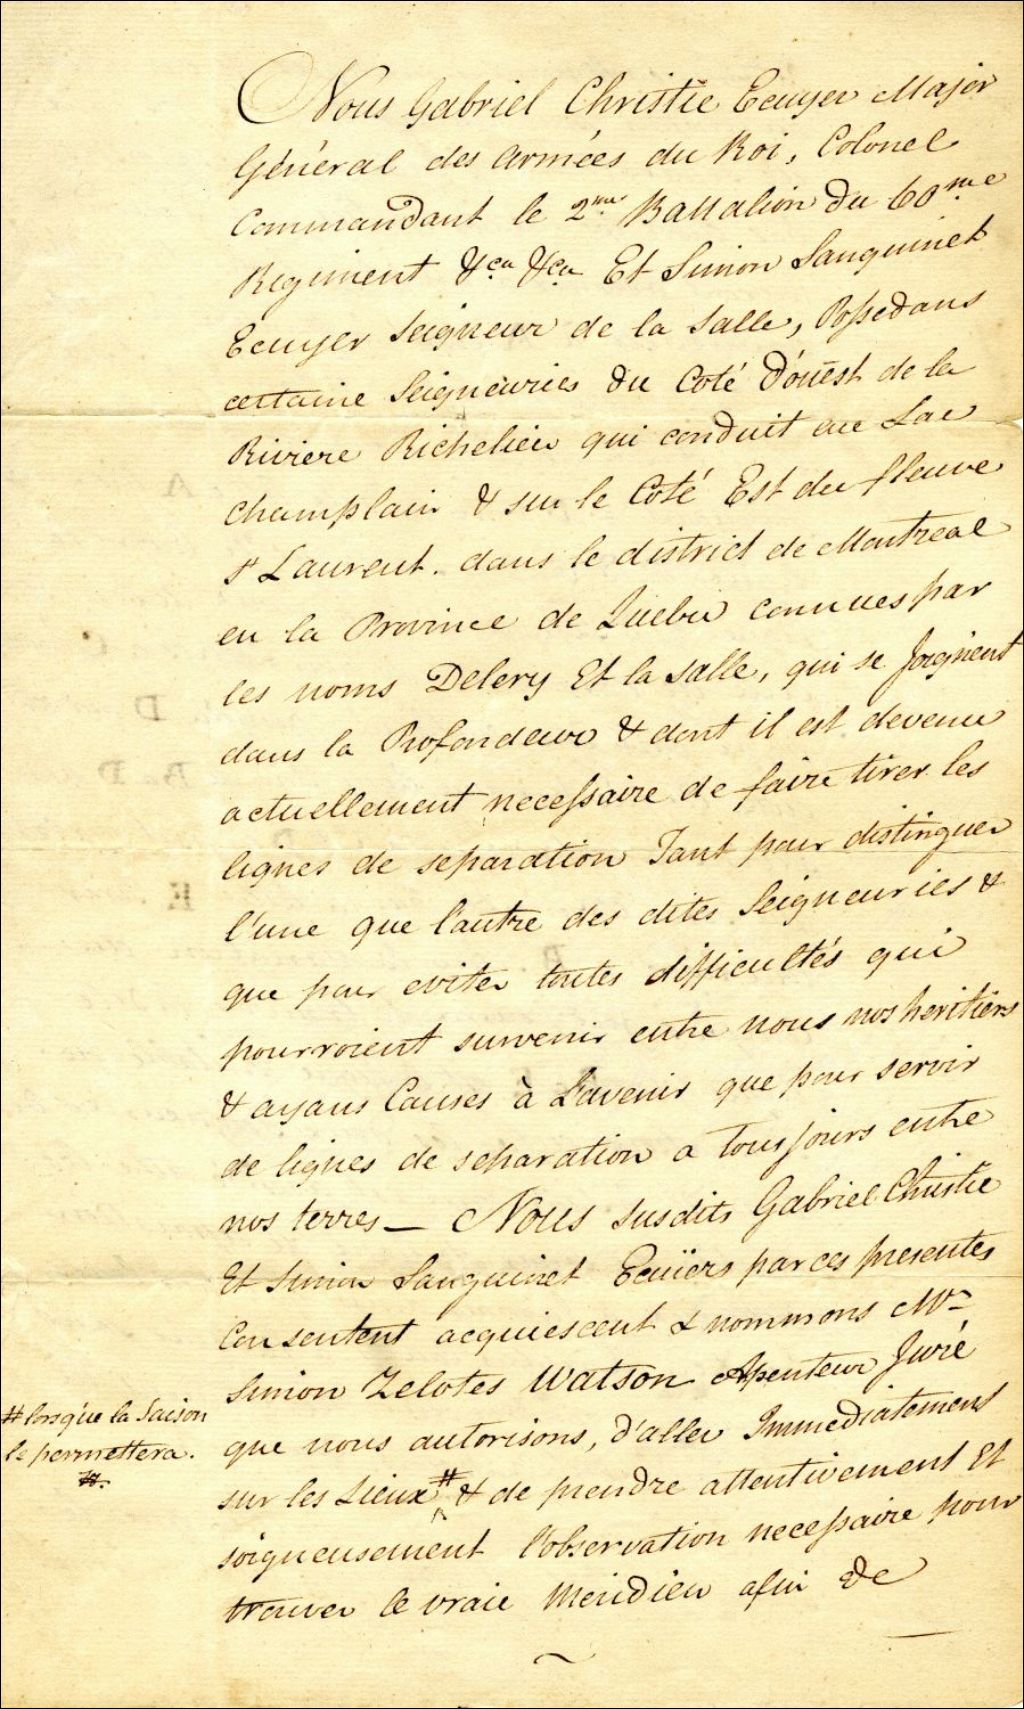 Nous Gabriel Christie Ecuyer Major
Général des Armées du Roi, Colonel
Commandant le 2me Battalion du 60me
Regiment &ca &ca Et Simon Sanguinet
Ecuyer Seigneur de la Salle, Possedans
certaine Seigneuries du Coté d'oüest de la
Riviere Richelieu qui conduit au Lac
Champlain & sur le Coté Est du fleuve
St Laurent. dans le district de Montreal
en la Province de Quebec connues par
les noms Delery Et la Salle, qui se Joignent
dans la Profondeur & dont il est devenu
actuellement necessaire de faire tirer les
lignes de separation Tant pour distinguer
l'une que l'autre des dites Seigneuries &
que pour eviter toutes difficultés qui
pourroient survenir entre nous nos heritiers
& ayans Causes à L'avenir que pour servir
de lignes de separation a tousjours entre
nos terres — Nous susdits Gabriel Christie
Et Simon Sanguinet Ecuiers par ces presentes
Consentent acquiescent & nommons Mr
Simon Zelotes Watson Arpenteur Juré
que nous autorisons, d'aller Immediatement
# lorsque la Saison
le permettera.
#.
sur les Lieux # & de prendre attentivement Et
soigneusement l'observation necessaire pour
trouver le vraie Meridien afin de